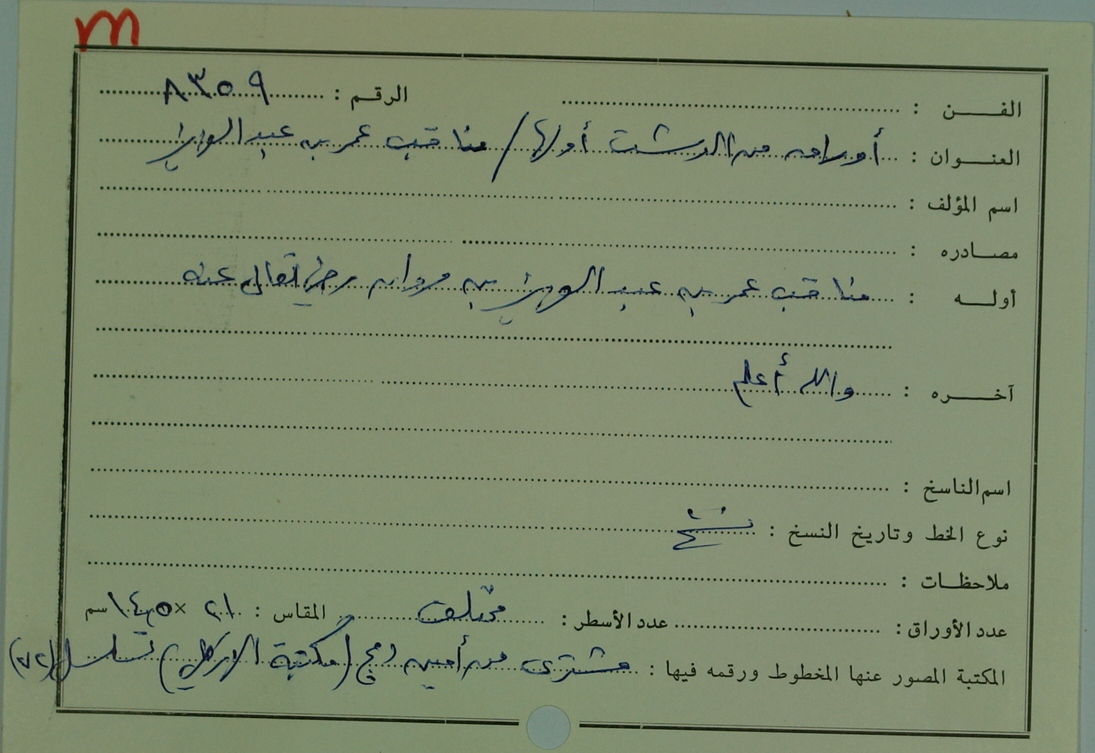 m
الفـن : الرقم : ٨٣٥٩
العنـوان : أوراق من الدشت أولها / مناقب عمر بن عبد العزيز
اسم المؤلف :
مصـادره :
أولـه : مناقب عمر بن عبد العزيز بن مروان رضي تعالى عنه
آخـره : والله أعلم
اسم الناسخ :
نوع الخط وتاريخ النسخ : نسخ
ملاحظـات :
عدد الأوراق : عدد الأسطر : مختلف المقاس : ٢١ × ١٤٫٥ سم
المكتبة المصور عنها المخطوط ورقمه فيها : مشترى من أمين دمج (مكتبة الزركلي) تسلسل (٧٢)